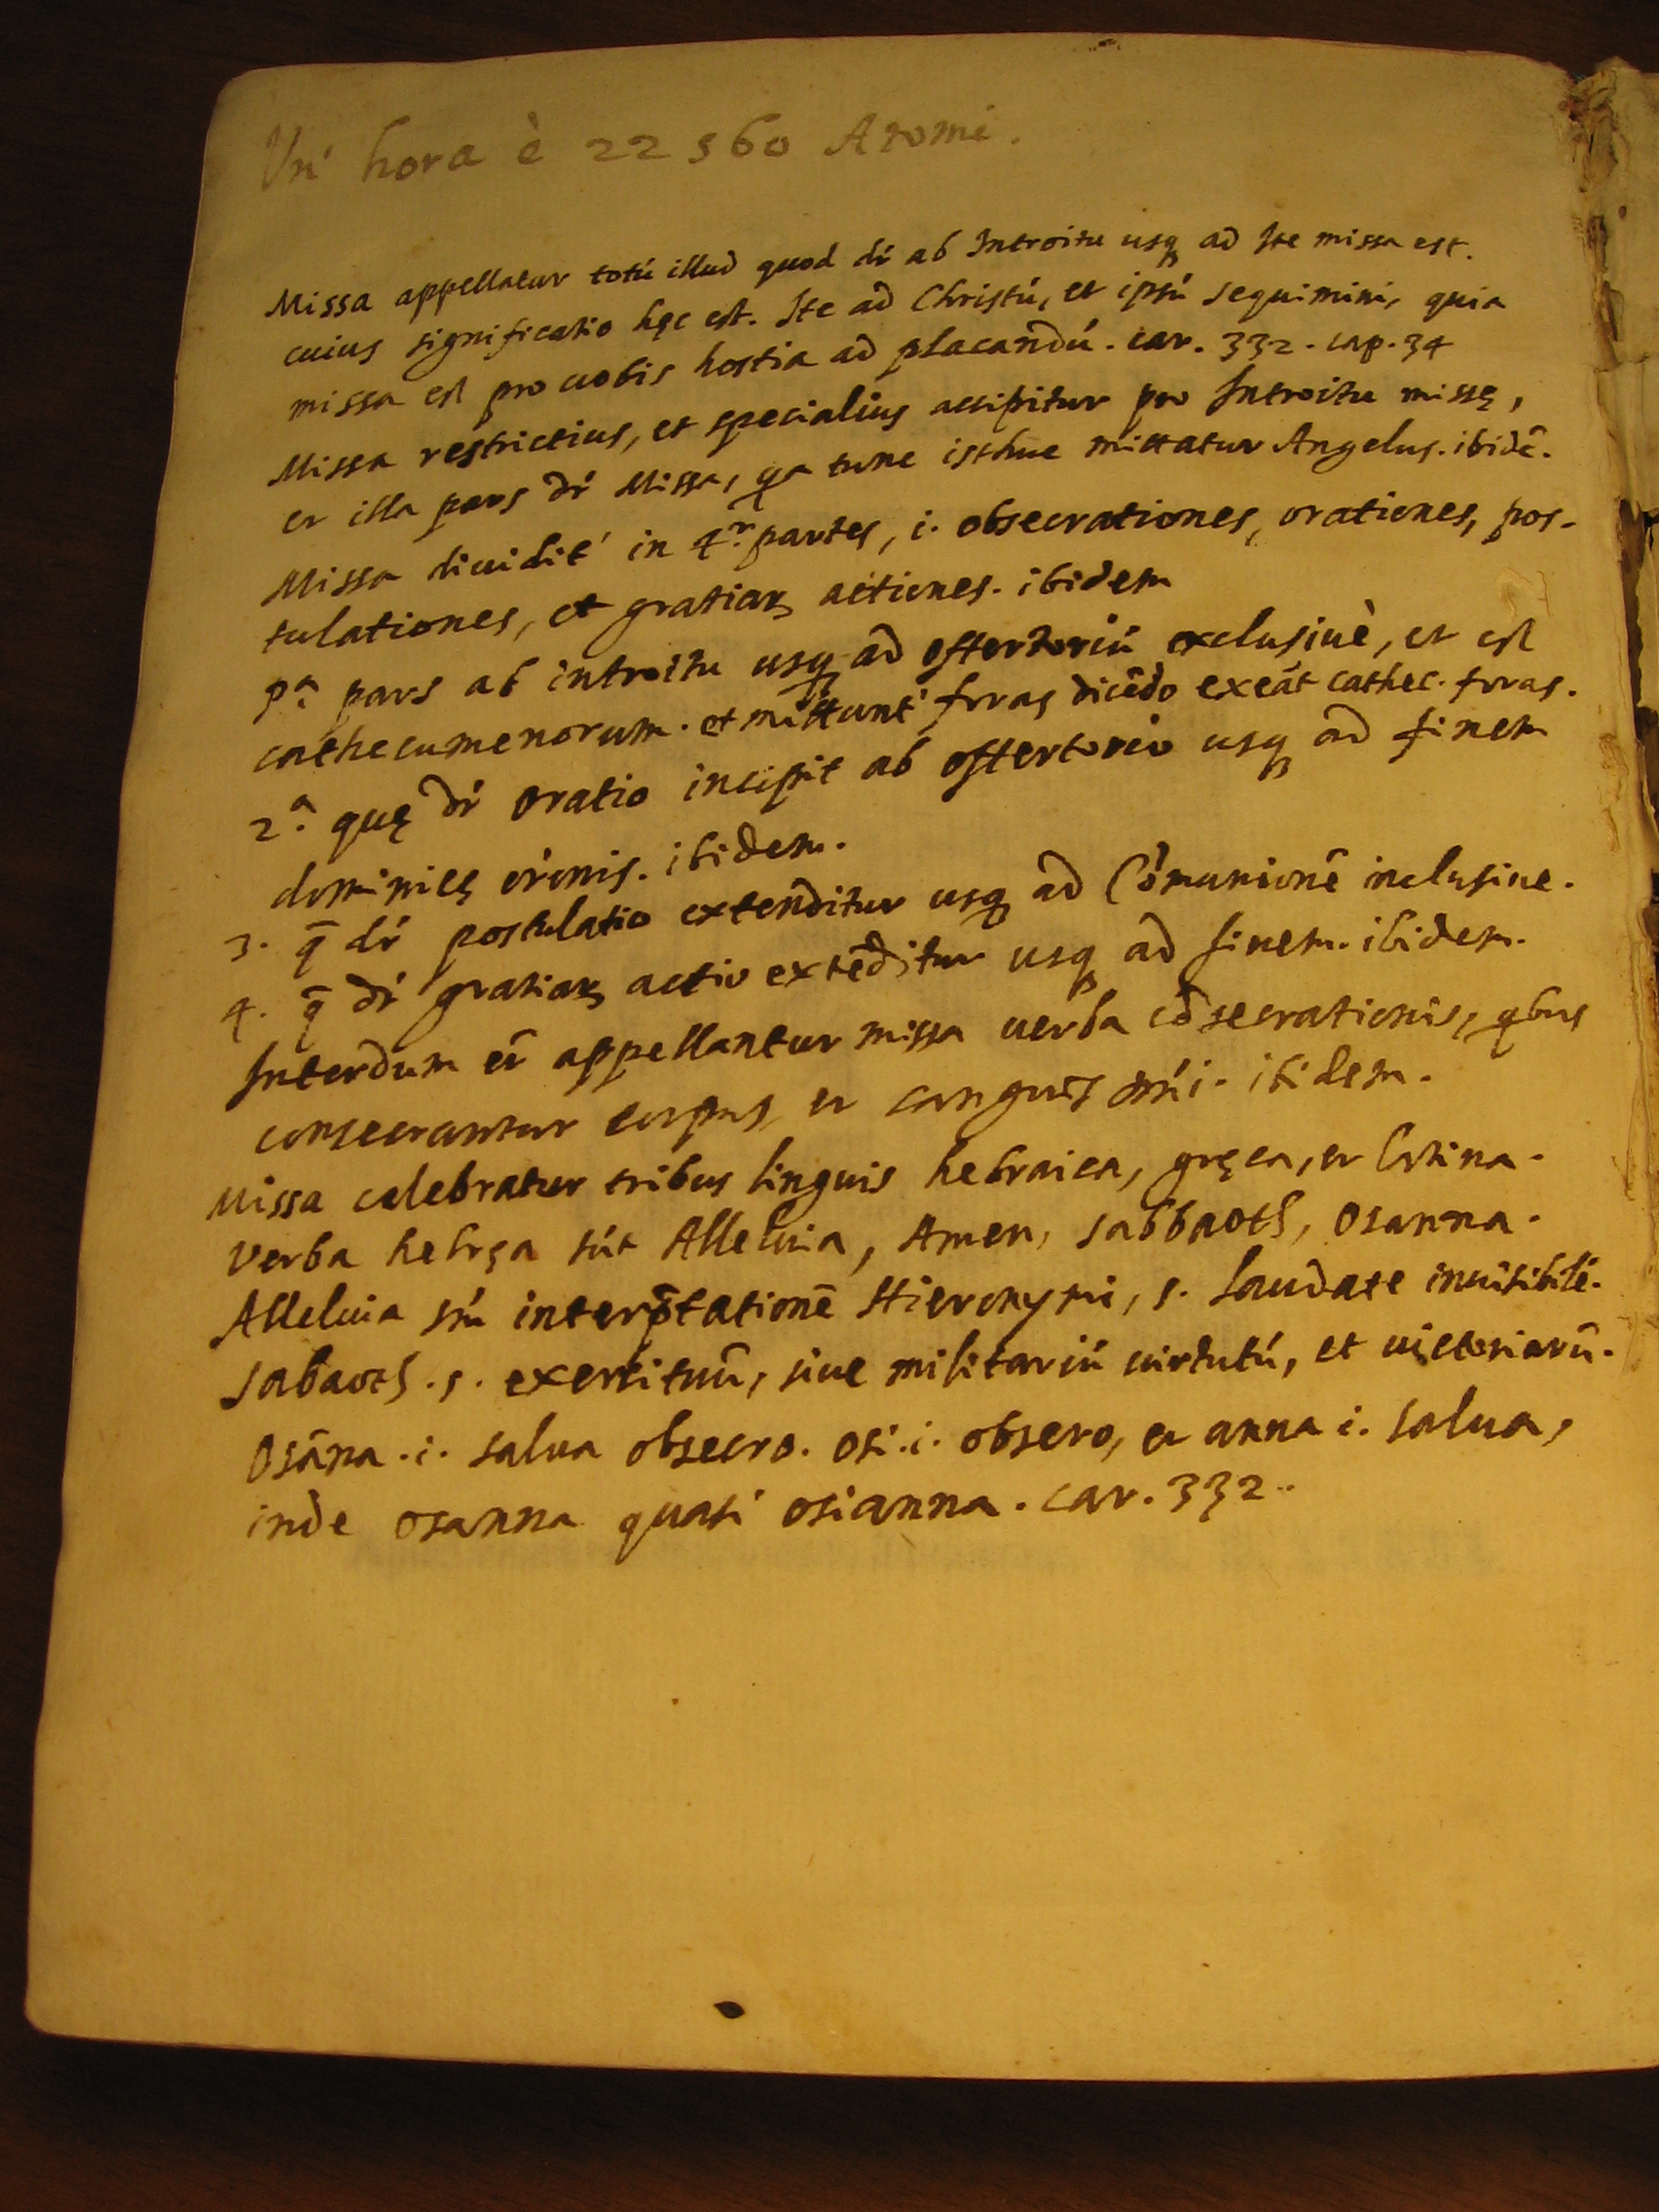 Un' hora è 22560 Atomi.
Missa appellatur totú illud quod dŕ ab Introitu usq ad Ite missa est.
cuius significatio hęc est. Ite ad Christú, et ipsú sequimini, quia
missa est pro uobis hostia ad placandú. car. 332. cap. 34
Missa restrictius, et specialius accipitur pro Introitu missę,
et illa pars dŕ Missa, qa tunc isthuc mittatur Angelus. ibidē.
Missa diuidit́ in 4.r partes, i. obsecrationes, orationes, pos-
tulationes, et gratiaꝝ actiones. ibidem
p.a pars ab introitu usq ad offertoriú exclusiuè, et est
cathecumenorum. et mittunt́ foras dicēdo exeāt cathec. foras.
2.a quę dŕ oratio incipit ab offertorio usq ad finem
dominicę orónis. ibidem.
3. q̄ dŕ postulatio extenditur usq ad Cómunionē inclusiue.
4. q̄ dŕ gratiaꝝ actio extēditur usq ad finem. ibidem.
Interdum et̄ appellantur missa uerba cōsecrationis, qbus
consecrantur corpus et sanguis dńi. ibidem.
Missa celebratur tribus linguis hebraica, gręca, et latina.
Verba hebręa sút Alleluia, Amen, sabbaoth, Osanna.
Alleluia sḿ interp̄tationē Hieronymi, s. laudate inuisibilé.
Sabaoth .s. exercituū, siue militariú uirtutú, et uictoriarū.
Osāna .i. salua obsecro. osi .i. obsero, et anna i. salua,
inde osanna quasi osianna. car. 332.